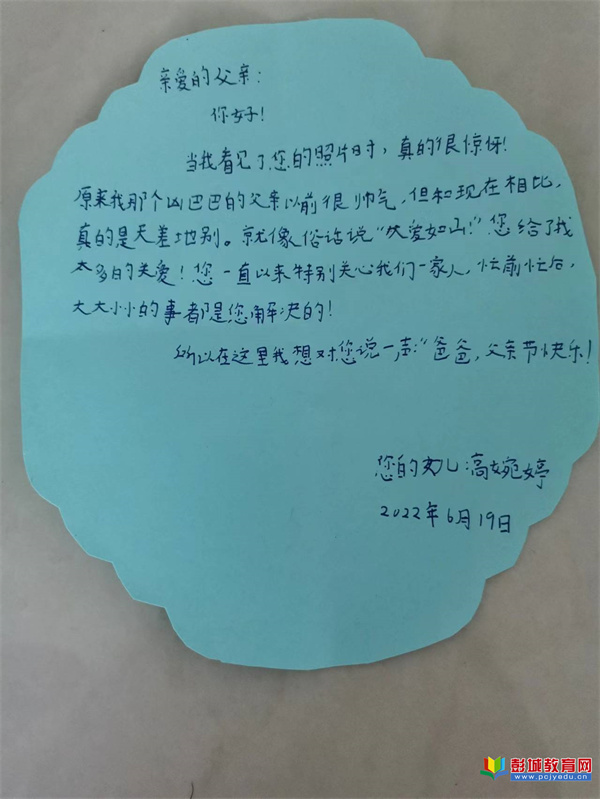 亲爱的父亲：
你好！
当我看见了您的照片时，真的很惊伢！
原来我那个凶巴巴的父亲以前很帅气，但和现在相比，
真的是天差地别。就像俗话说“父爱如山！”您给了我
太多的关爱！您一直以来特别关心我们一家人，忙前忙后，
大大小小的事都是您解决的！
所以在这里我想对您说一声“爸爸，父亲节快乐！
您的女儿：高婉婷
2022年6月19日
彭城教育网
www.pcjyedu.cn